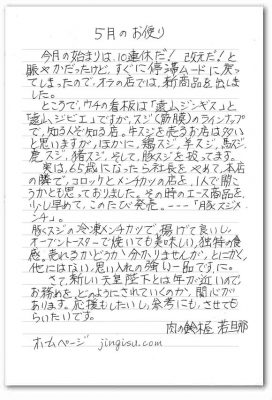 5月のお便り
今月の始まりは、10連休だ!改元だ!と
賑やかだったけど、すぐに停滞ムードに戻っ
てしまったので、オラの店では、新商品を出しま
した。
ところで、ウチの看板は「遠山ジンギス」と
「遠山ジビエ」ですが、スジ(筋膜)のラインナップ
で、知る人ぞ知る店。牛スジを売るお店は多い
と思いますが、ほかに、鶏スジ、羊スジ、馬スジ、
鹿スジ、猪スジ、そして、豚スジを扱ってます。
実は、65歳になったら社長をやめて、本店
の隣で、コロッケとメンチカツの店を、1人で開こ
うかとも思っておりました。その時のエース商品を
少し早めて、このたび発売。---「豚スジメ
ンチ」。
豚スジの冷凍メンチカツで、揚げて良いし、
オーブントースターで焼いても美味しい、独特の食
感。売れるかどうか分かりませんが、とにかく、
他にはない、思い入れの強い一品です。に。
さて、新しい天皇陛下とは年が近いので、
お務めを、どのようにされていくのか、関心が
あります。応援もしたいし、参考にも、させても
らいたいです。
肉の鈴木屋 若旦那
ホームページ jingisu.com